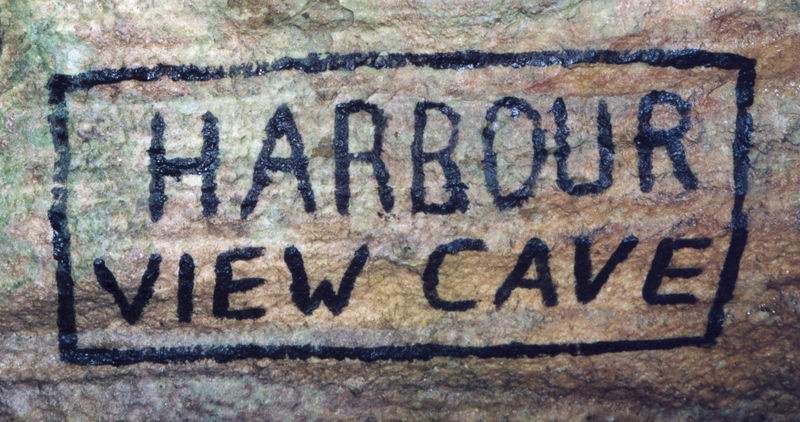 HARBOUR
VIEW CAVE